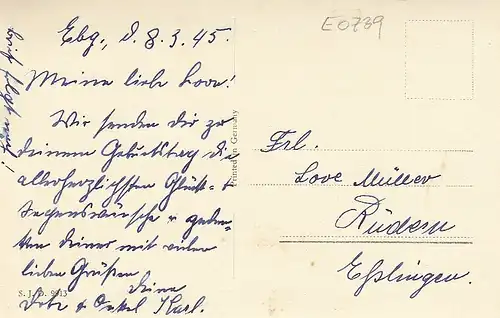 E0739
Ebg., d. 8.3.45.
Meine liebe Love!
Wir senden dir zu
deinem Geburtstag die
allerherzlichsten Glück- &
Segenswünsche u. geden-
ken deiner mit vielen
lieben Grüßen
deine
& Onkel Karl.
Brief folgt nach!
Printed in Germany
S. J. D. 9613
Frl.
Love Müller
Rüdern
Eßlingen.